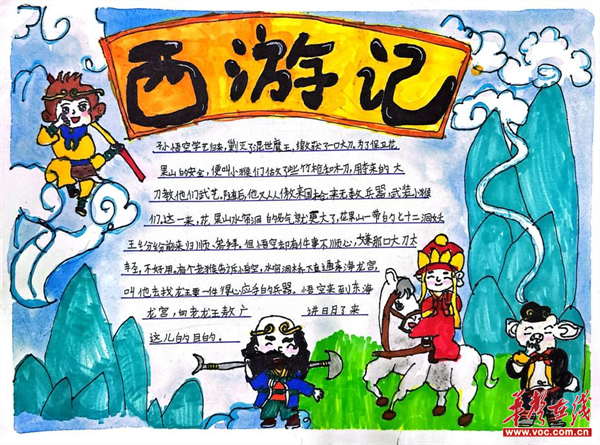 西游记
孙悟空学艺归来，剿灭了混世魔王，缴获了一口大刀，为了保卫花
果山的安全，便叫小猴们做了些竹枪和木刀，用夺来的大
刀教他们武艺，随后，他又从傲来国抢来无数兵器，武装小猴
们，这一来，花果山水帘洞的名气就更大了，花果山一带的七十二洞妖
王纷纷前来归顺。但悟空却有件事不顺心，嫌那口大刀太
不好用。有个老猴告诉悟空，水帘洞桥下直通东海龙宫，
叫他去找龙王要一件得心应手的兵器。悟空来到东海
龙宫，向老龙王敖广 进日月了来
这儿的目的。
华声在线
www.voc.com.cn